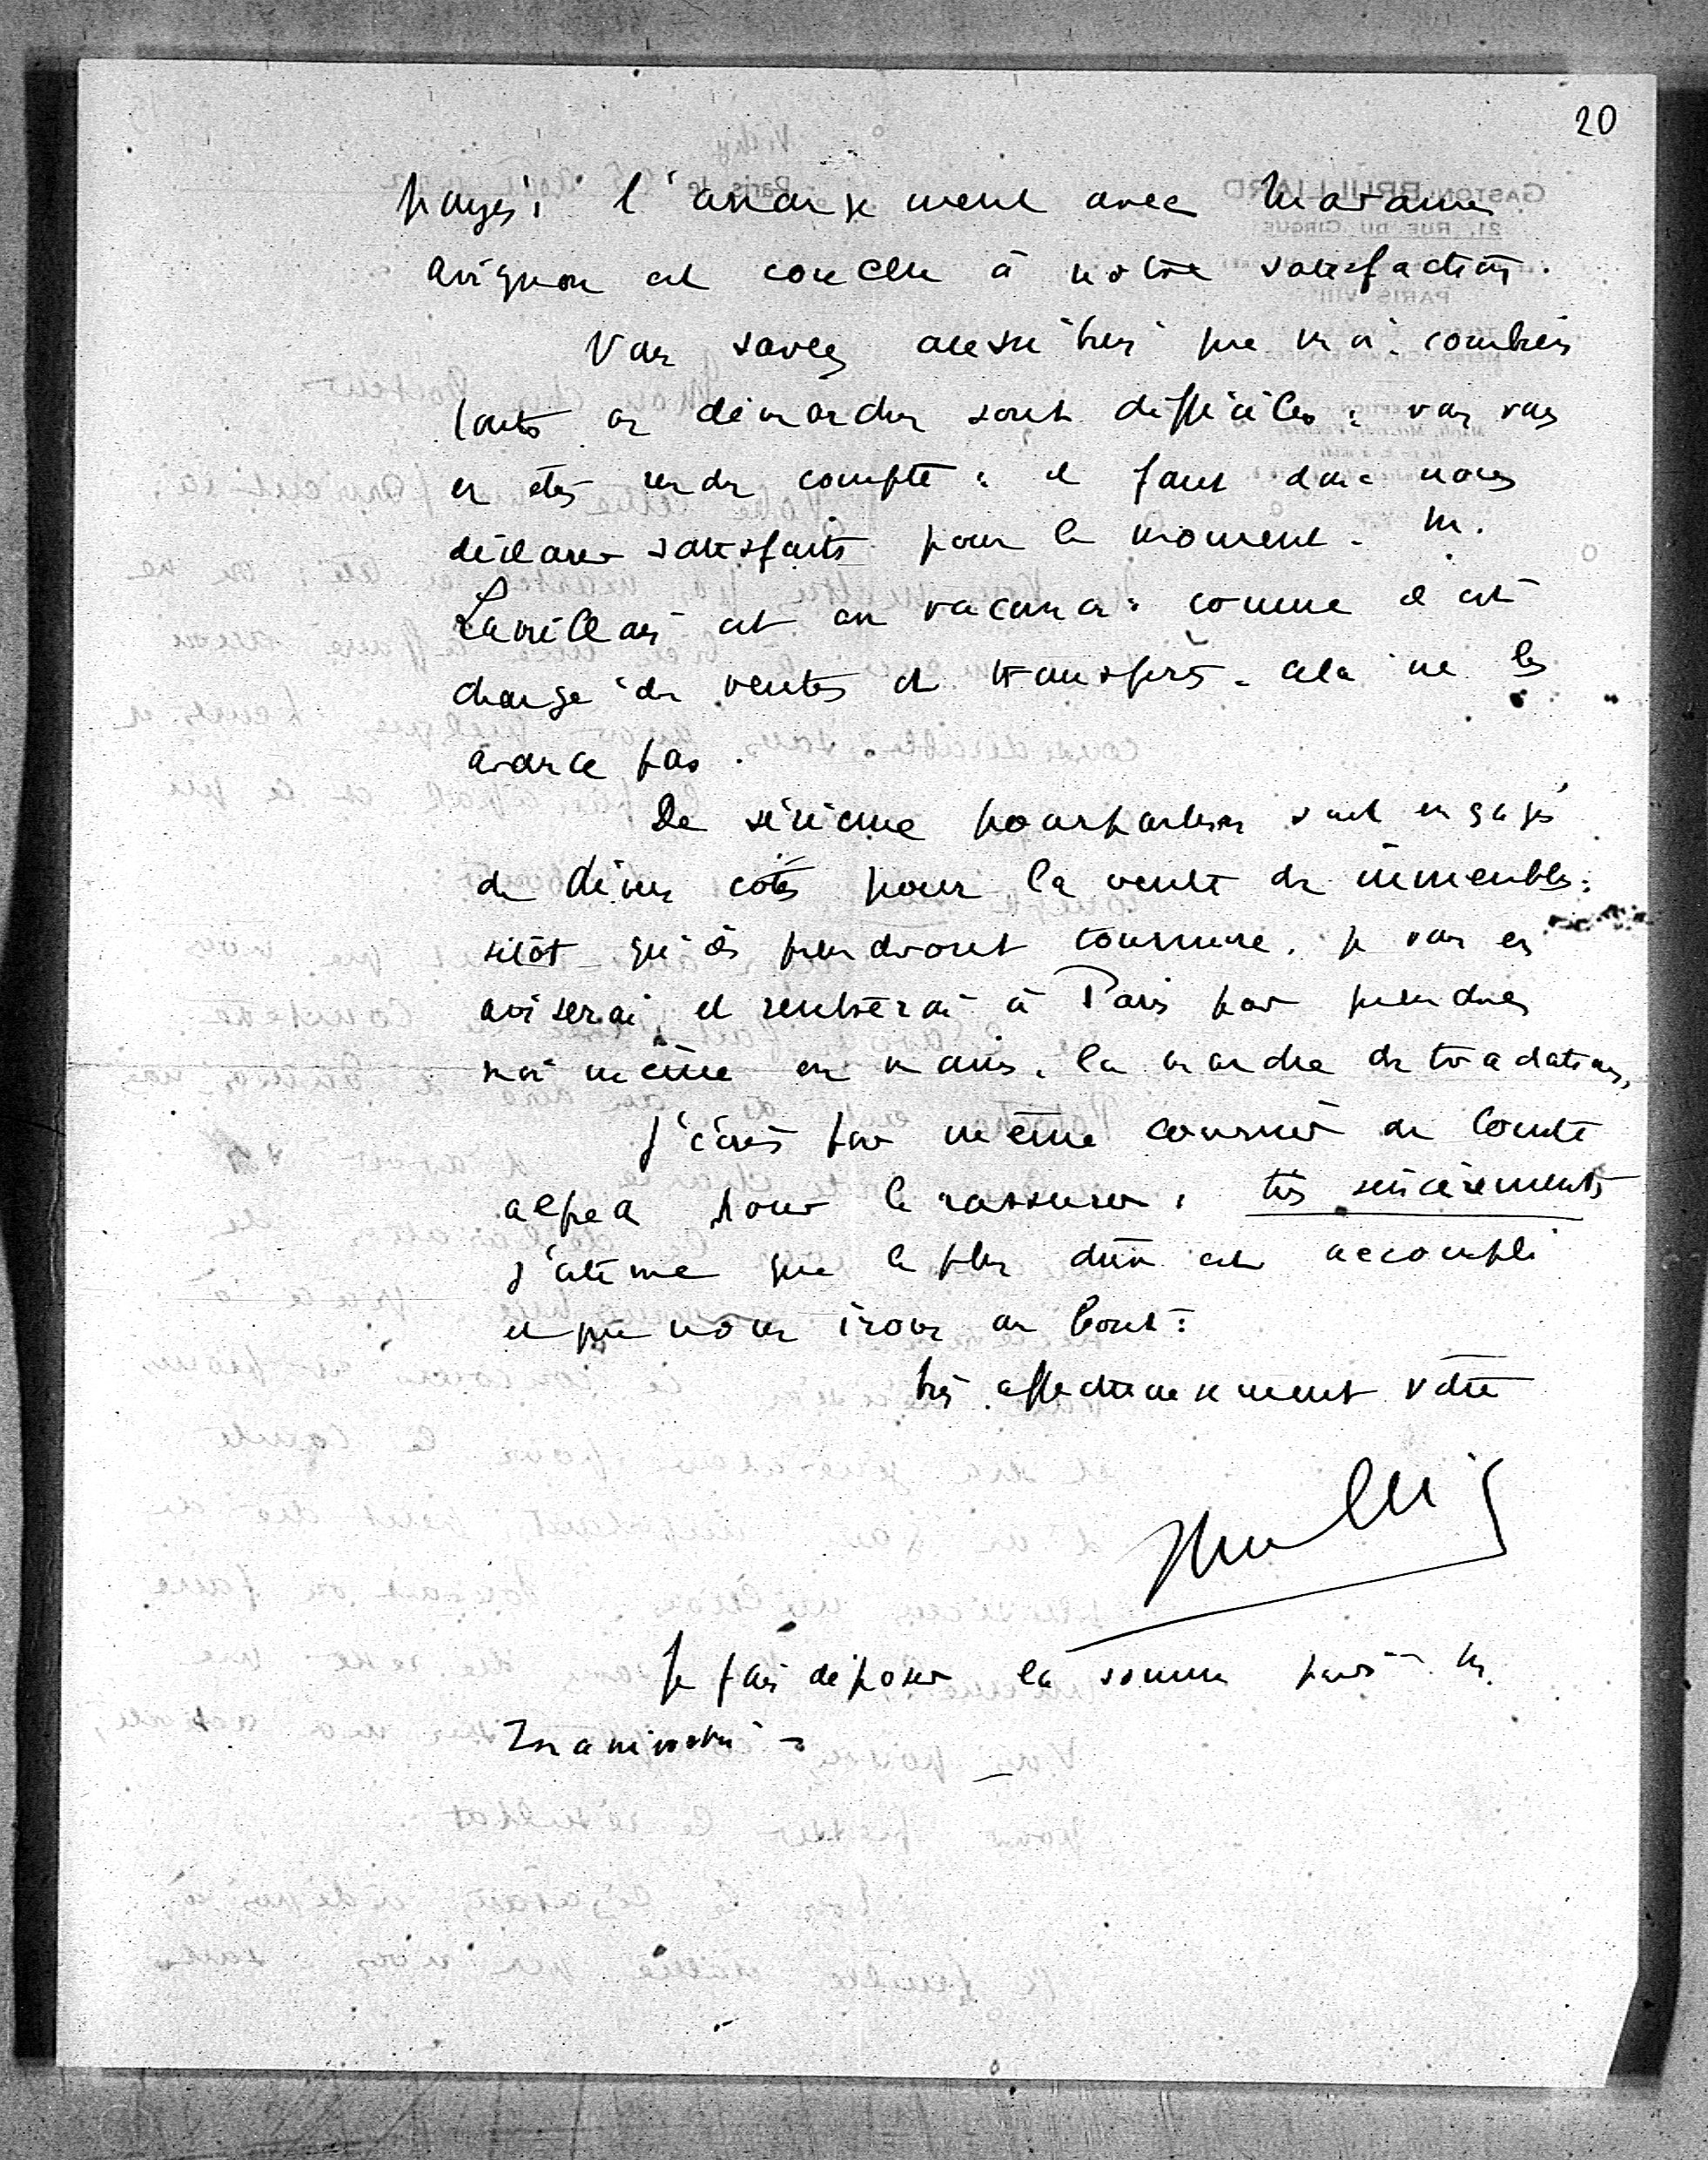 20
payés: l'arrangement avec Madame
Avignon est conclu à notre satisfaction.
Vous savez aussi bien que moi combien
toutes ces démarches sont difficiles: vous vous
en êtes rendu compte: il faut donc nous
déclarer satisfaits pour le moment. M.
est en vacances: comme il est
chargé des ventes et transferts. cela ne les
avance pas.
De sérieux pourparlers sont engagés
de divers cotés pour la vente des immeubles:
sitôt qu'ils prendront tournure. je vous en
aviserai et rentrerai à Paris pour prendre
moi même en mains. la marche des tractations,
J'écris par même courrier au Comte
pour le rassurer: très sincèrement
j'estime que le plus dur est accompli
et que nous irons au bout:
très affectueusement vôtre
Je fais déposer la somme pour M.